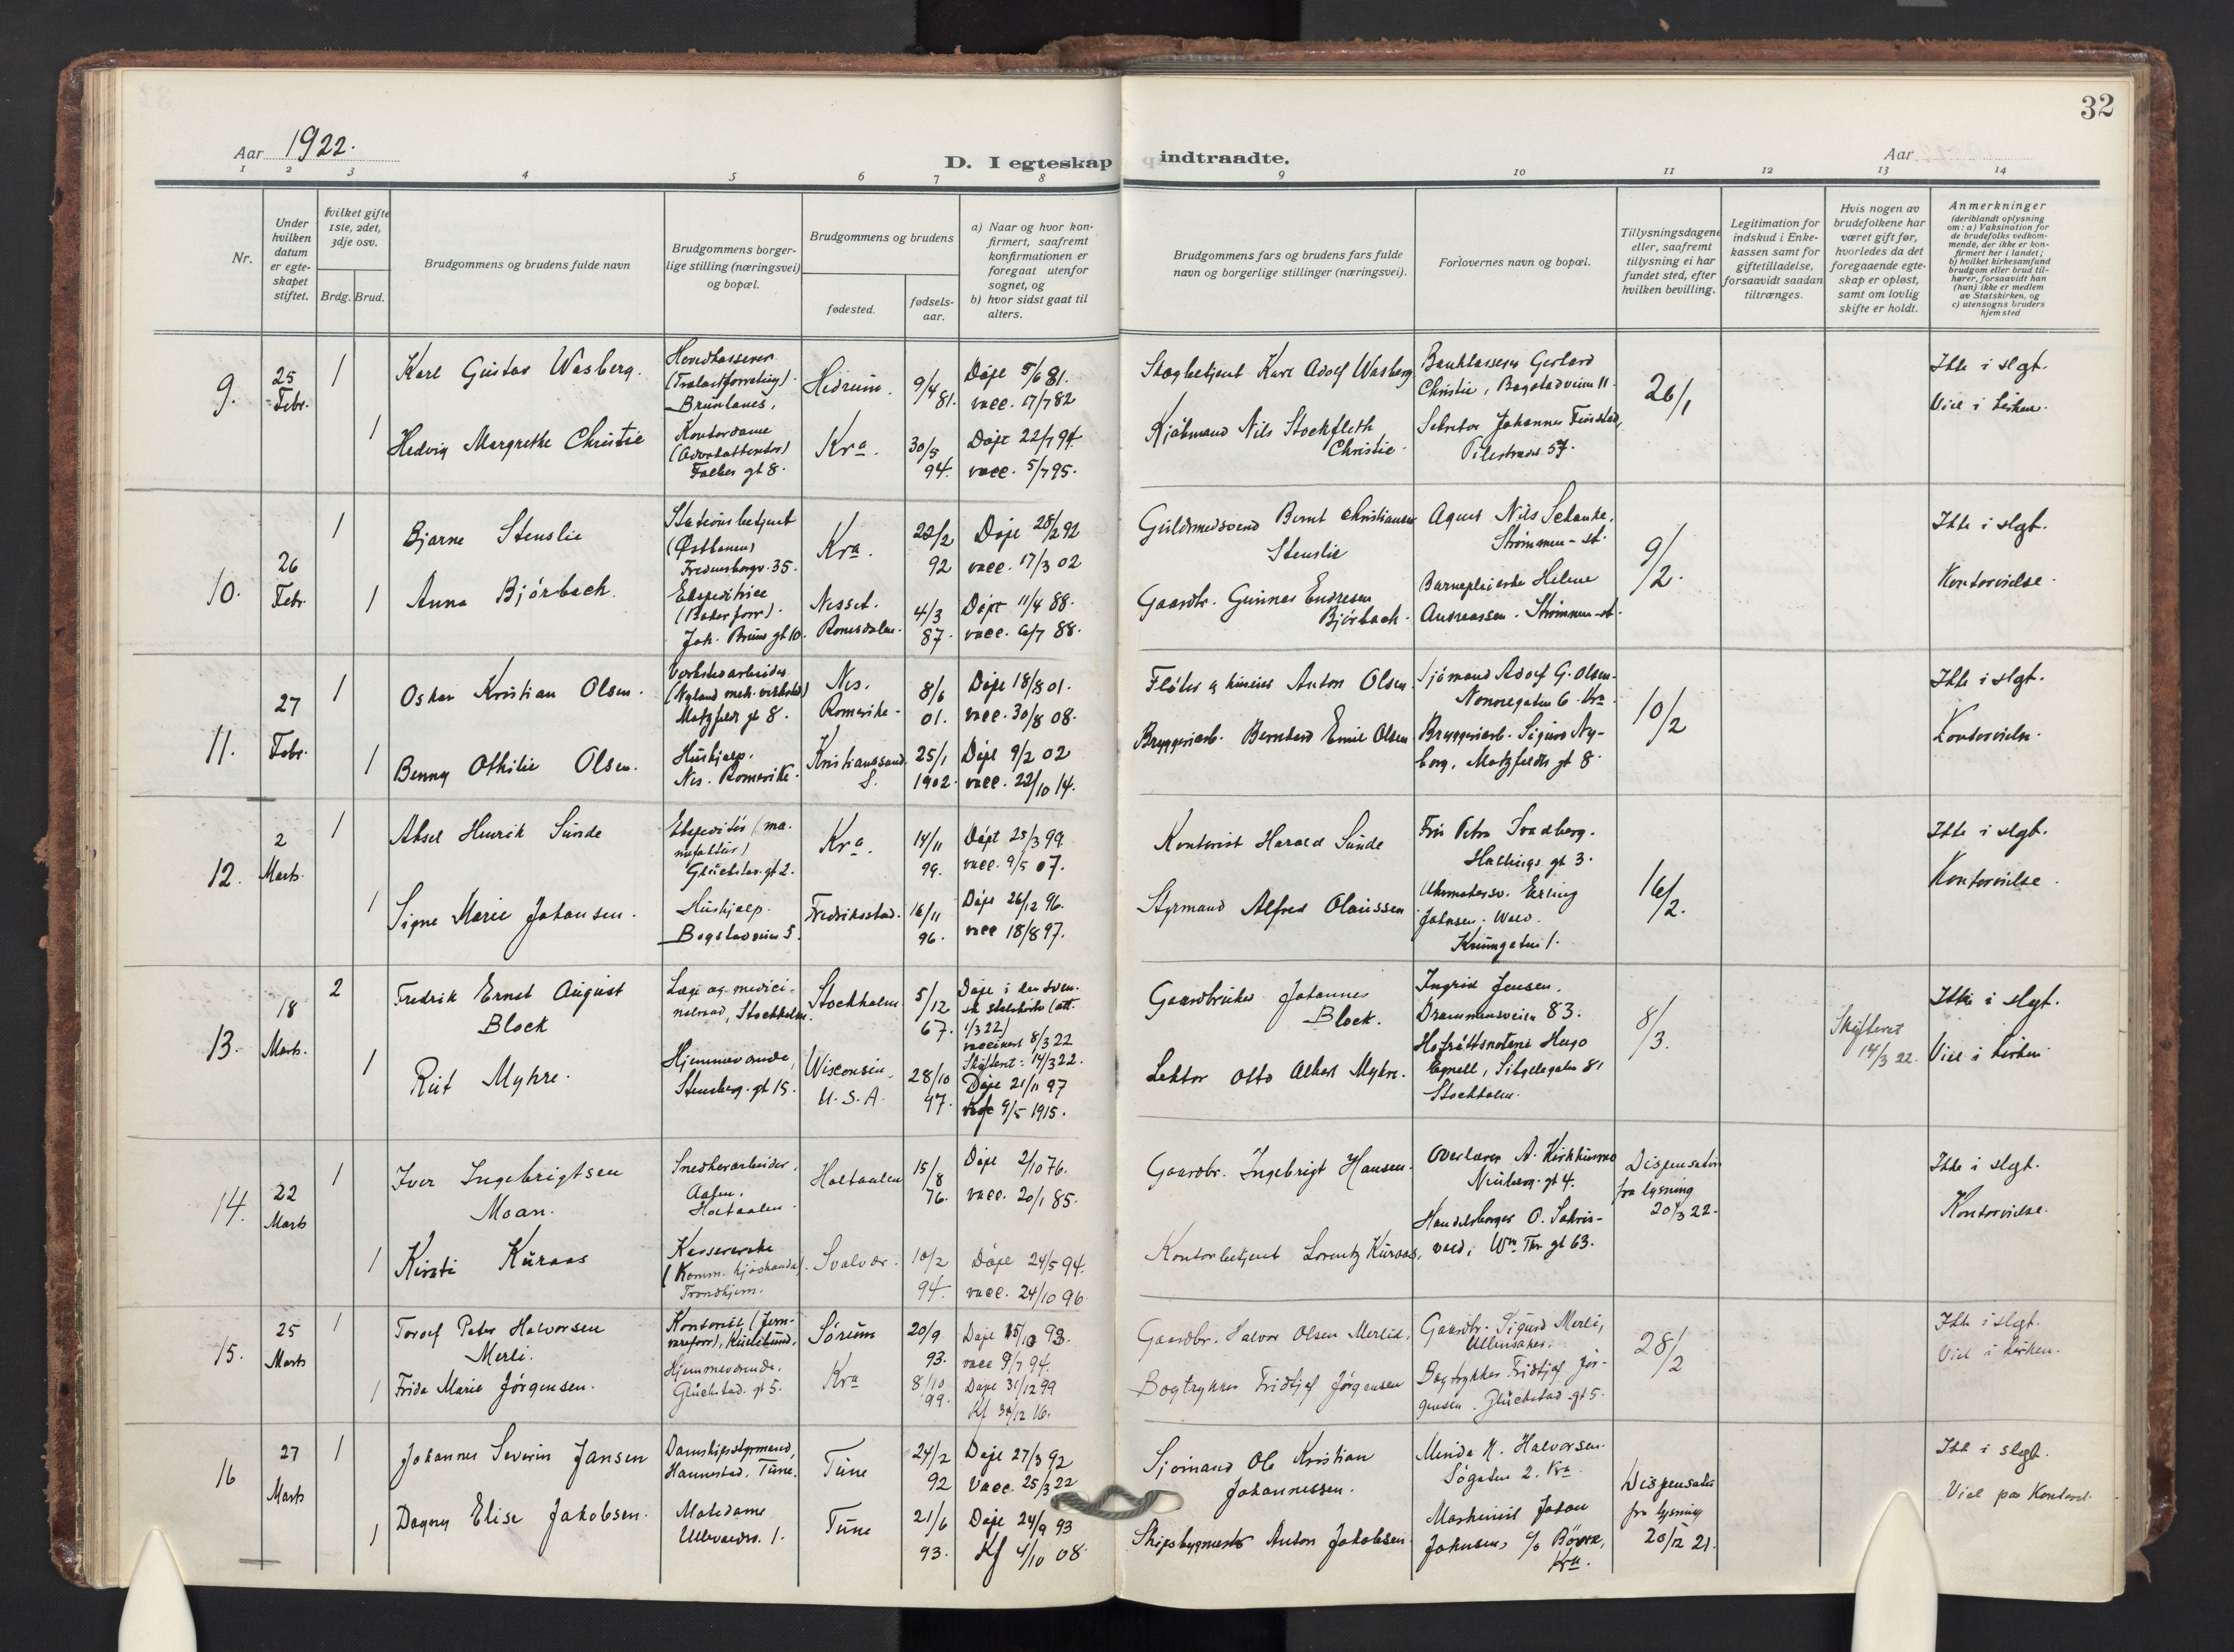 32
Aar 1922.
D. I egteskap indtraadte.
Aar
1 2 3 4 5 6 7 8 9 10 11 12 13 14
Nr.
Under hvilken datum er egte- skapet stiftet.
hvilket gifte 1ste, 2det, 3dje osv.
Brdg. Brud.
Brudgommens og brudens fulde navn
Brudgommens borger- lige stilling (næringsvei) og bopæl.
Brudgommens og brudens
fødested.
fødsels- aar.
a) Naar og hvor kon- firmert, saafremt konfirmationen er foregaat utenfor sognet, og
b) hvor sidst gaat til alters.
Brudgommens fars og brudens fars fulde navn og borgerlige stillinger (næringsvei).
Forlovernes navn og bopæl.
Tillysningsdagene eller, saafremt tillysning ei har fundet sted, efter hvilken bevilling.
Legitimation for indskud i Enke- kassen samt for giftetilladelse, forsaavidt saadan tiltrænges.
Hvis nogen av brudefolkene har været gift før, hvorledes da det foregaaende egte- skap er opløst, samt om lovlig skifte er holdt.
Anmerkninger (deriblandt oplysning om: a) Vaksination for de brudefolks vedkom- mende, der ikke er kon- firmert her i landet; b) hvilket kirkesamfund brudgom eller brud til- hører, forsaavidt han (hun) ikke er medlem av Statskirken, og c) utensogns bruders hjemsted
9.
25 Febr.
1
Karl Gustav Wasberg.
Hovedkasserer
Brunlanes.
Hedrum.
9/4 81.
Døpt 5/6 81.
vacc. 17/7 82
Karl Adolf Wasberg
Christie, Bogstadveien 11.
26/1
Ikke i slegt.
Viet i kirken.
1
Hedvig Margrethe Christie
Kontordame
Falbes gt 8.
Kra.
30/5 94.
Døpt 22/7 94.
vacc. 5/7 95.
Kjøbmand Nils Stockfleth Christie
Pilestrædet 57.
10.
26 Febr.
1
Bjarne Stenslie
Stationsbetjent
(Østbanen)
Fredensborgv. 35.
Kra.
22/2 92
Døpt 28/2 92
vacc. 17/3 02
Guldsmedsvend Bernt Christiansen Stenslie
Agent Nils Schanke.
Strømmen - st.
9/2.
Ikke i slegt.
Kontorvielse.
1
Anna Bjørbach.
Ekspeditrice
Joh. Bruns gt 10.
Nesset. Romsdalen.
4/3 87.
Døpt 11/4 88.
vacc. 6/7 88.
Gaardbr. Gunnar Endresen Bjørbach.
Barnepleierske Helene
Andreassen. Strømmen-st.
11.
27 Febr.
1
Oskar Kristian Olsen.
Verkstedarbeider
(Nyland mek. verksted)
Motzfeldt gt 8.
Nes. Romerike -
8/6 01.
Døpt 18/8 01.
vacc. 30/8 08.
Anton Olsen
Sjømand Adolf G. Olsen-
Nonnegaten 6. Kra.
10/2
Ikke i slegt.
Kontorvielse.
1
Benny Othilie Olsen.
Hushjælp.
Nes. Romerike.
Kristianssand S.
25/1 1902.
Døpt 9/2 02
vacc. 22/10 14.
Bryggeriarb. Bernhard Emil Olsen
Bryggeriarb. Sigurd Ny-
borg. Motzfeldts gt 8.
12.
2 Marts.
1
Aksel Henrik Sunde
Ekspeditør (ma-
nufaktur)
Glückstad. gt 2.
Kra.
14/11 99.
Døpt 25/3 99.
vacc. 9/5 07.
Kontorist Harald Sunde
Fru Petra Svadberg.
Hallings gt 3.
16/2.
Ikke i slegt.
Kontorvielse.
1
Signe Marie Johansen.
Hushjælp.
Bogstadveien 5.
Fredriksstad.
16/11 96.
Døpt 26/12 96.
vacc 18/8 97.
Styrmand Alfred Olaussen
Urmakersv. Erling
Johnsen.
Krumgaten 1.
13.
18 Marts.
2
Fredrik Ernst August Block
Læge og medici-
nalraad, Stockholm.
Stockholm
5/12 67.
Døpt i den sven-
ske statskirke (att.
1/3 22)
8/3 22
Skiftent: 14/3 22.
Gaardbruker Johannes Block.
Ingrid Jensen.
Drammensveien 83.
8/3.
Skifteret
14/3 22.
Ikke i slegt.
Viet i kirken
1
Rut Myhre.
Hjemmeværende,
Stensberg. gt 15.
Wisconsin, U.S.A.
28/10 97.
Døpt 21/11 97
9/5 1915.
Lektor Otto Albert Myhre.
Hofråttsnotarie Hugo
Stockholm.
14.
22 Marts
1
Iver Ingebrigtsen Moan.
Snedkerarbeider.
Aalen.
Holtaalen.
Holtaalen
15/8 76.
Døpt 2/10 76.
vacc. 20/1 85.
Gaardbr. Ingebrigt Hansen.
Overlærer A. Kirkhusmo
Neuberg. gt 4.
Dispensation
fra lysning
20/3 22.
Ikke i slegt.
Kontorvielse.
1
Kirsti Kuraas
Kassererske
Trondhjem.
Svolvær.
10/2 94.
Døpt 24/5 94.
vacc. 24/10 96.
Kontorbetjent Lorentz Kuraas,
Handelsborger O. Sakris-
vold, Wm Thr gt 63.
15.
25 Marts
1
Torolf Peter Halvorsen Merli.
Kontorist (Jern-
vareforr),
Sørum
20/9 93.
Døpt 15/10 93.
vacc 9/7 94.
Gaardbr. Halvor Olsen Merlid.
Gaardbr. Sigurd Merli,
Ullensaker.
28/2
Ikke i slegt.
Viet i kirken.
1
Frida Marie Jørgensen.
Hjemmeværende.
Glückstad. gt 5.
Kra
8/10 99.
Døpt 31/12 99
Kf 31/12 16.
Bogtrykker Fridtjof Jørgensen
Bogtrykker Fridtjof Jør-
gensen. Glückstad-gt 5.
16
27 Marts
1
Johannes Severin Jansen
Damskipsstyrmand,
Hannestad. Tune.
Tune
24/2 92
Døpt 27/3 92
Vacc. 25/3 22
Sjømand Ole Kristian Johannessen.
Minda H. Halvorsen.
Søgaten 2. Kra.
Dispensation
fra lysning
20/12 21.
Ikke i slegt.
Viet paa Kontoret.
1
Dagny Elise Jakobsen.
Motedame
Ullevaalsv. 1.
Tune
21/6 93.
Døpt 24/9 93
Kf 4/10 08.
Skipsbygmester Anton Jakobsen.
Maskinist Johan
Johnsen,
Kra.